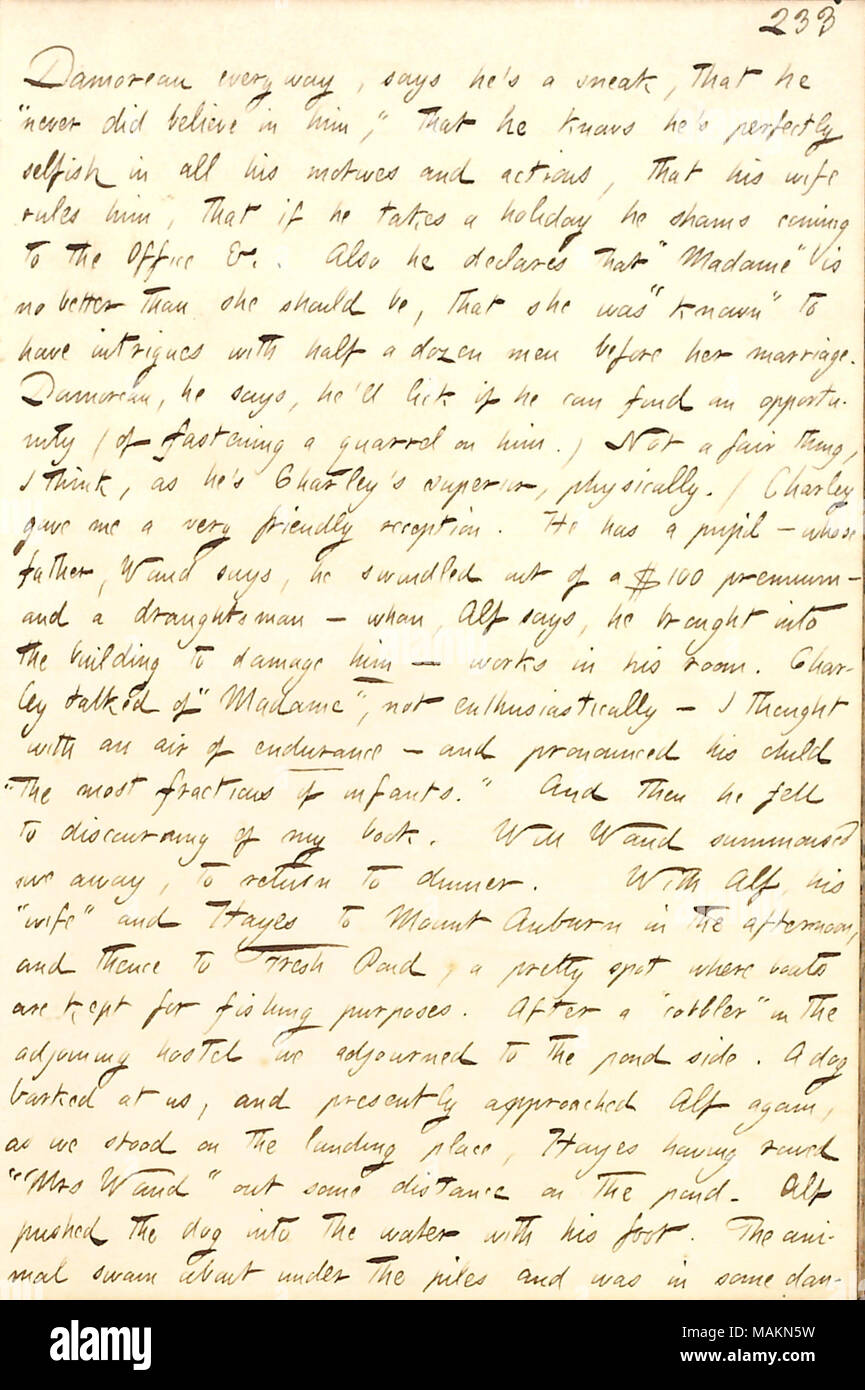 233
Damoreau every way, says he's a sneak, that he
"never did believe in him," that he knows he's perfectly
selfish in all his motives and actions, that his wife
rules him, that if he takes a holiday he shams coming
to the Office &c. Also he declares that "Madame" is
no better than she should be, that she was "known" to
have intrigues with half a dozen men before her marriage.
Damoreau, he says, he'll lick if he can find an opportu-
nity (of fastening a quarrel on him.) Not a fair thing,
I think, as he's Charley's superior, physically. / Charley
gave me a very friendly reception. He has a pupil — whose
father, Waud says, he swindled out of a $100 premium —
and a draughtsman — whom, Alf says, he brought into
the building to damage him — works in his room. Char-
ley talked of "Madame", not enthusiastically — I thought
with an air of endurance — and pronounced his child
"the most fractious of infants." And then he fell
to discoursing of my book. Will Waud summonsed
me away, to return to dinner. With Alf, his
"wife" and Hayes to Mount Auburn in the afternoon,
and thence to Fresh Pond, a pretty spot where boats
are kept for fishing purposes. After a "cobbler" in the
adjoining hostel we adjourned to the pond side. A dog
barked at us, and presently approached Alf again,
as we stood on the landing place, Hayes having rowed
"Mrs Waud" out some distance on the pond. Alf
pushed the dog into the water with his foot. The ani-
mal swam about under the piles and was in some dan-
alamy
Image ID: MAKN5W
www.alamy.com